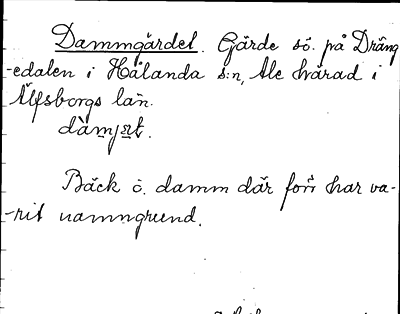 Dammgärdet. Gärde sö. på Dräng
-edalen i Hålanda s:n, Ale härad i
Älfsborgs län.
Bäck o. damm där förr har va-
-rit